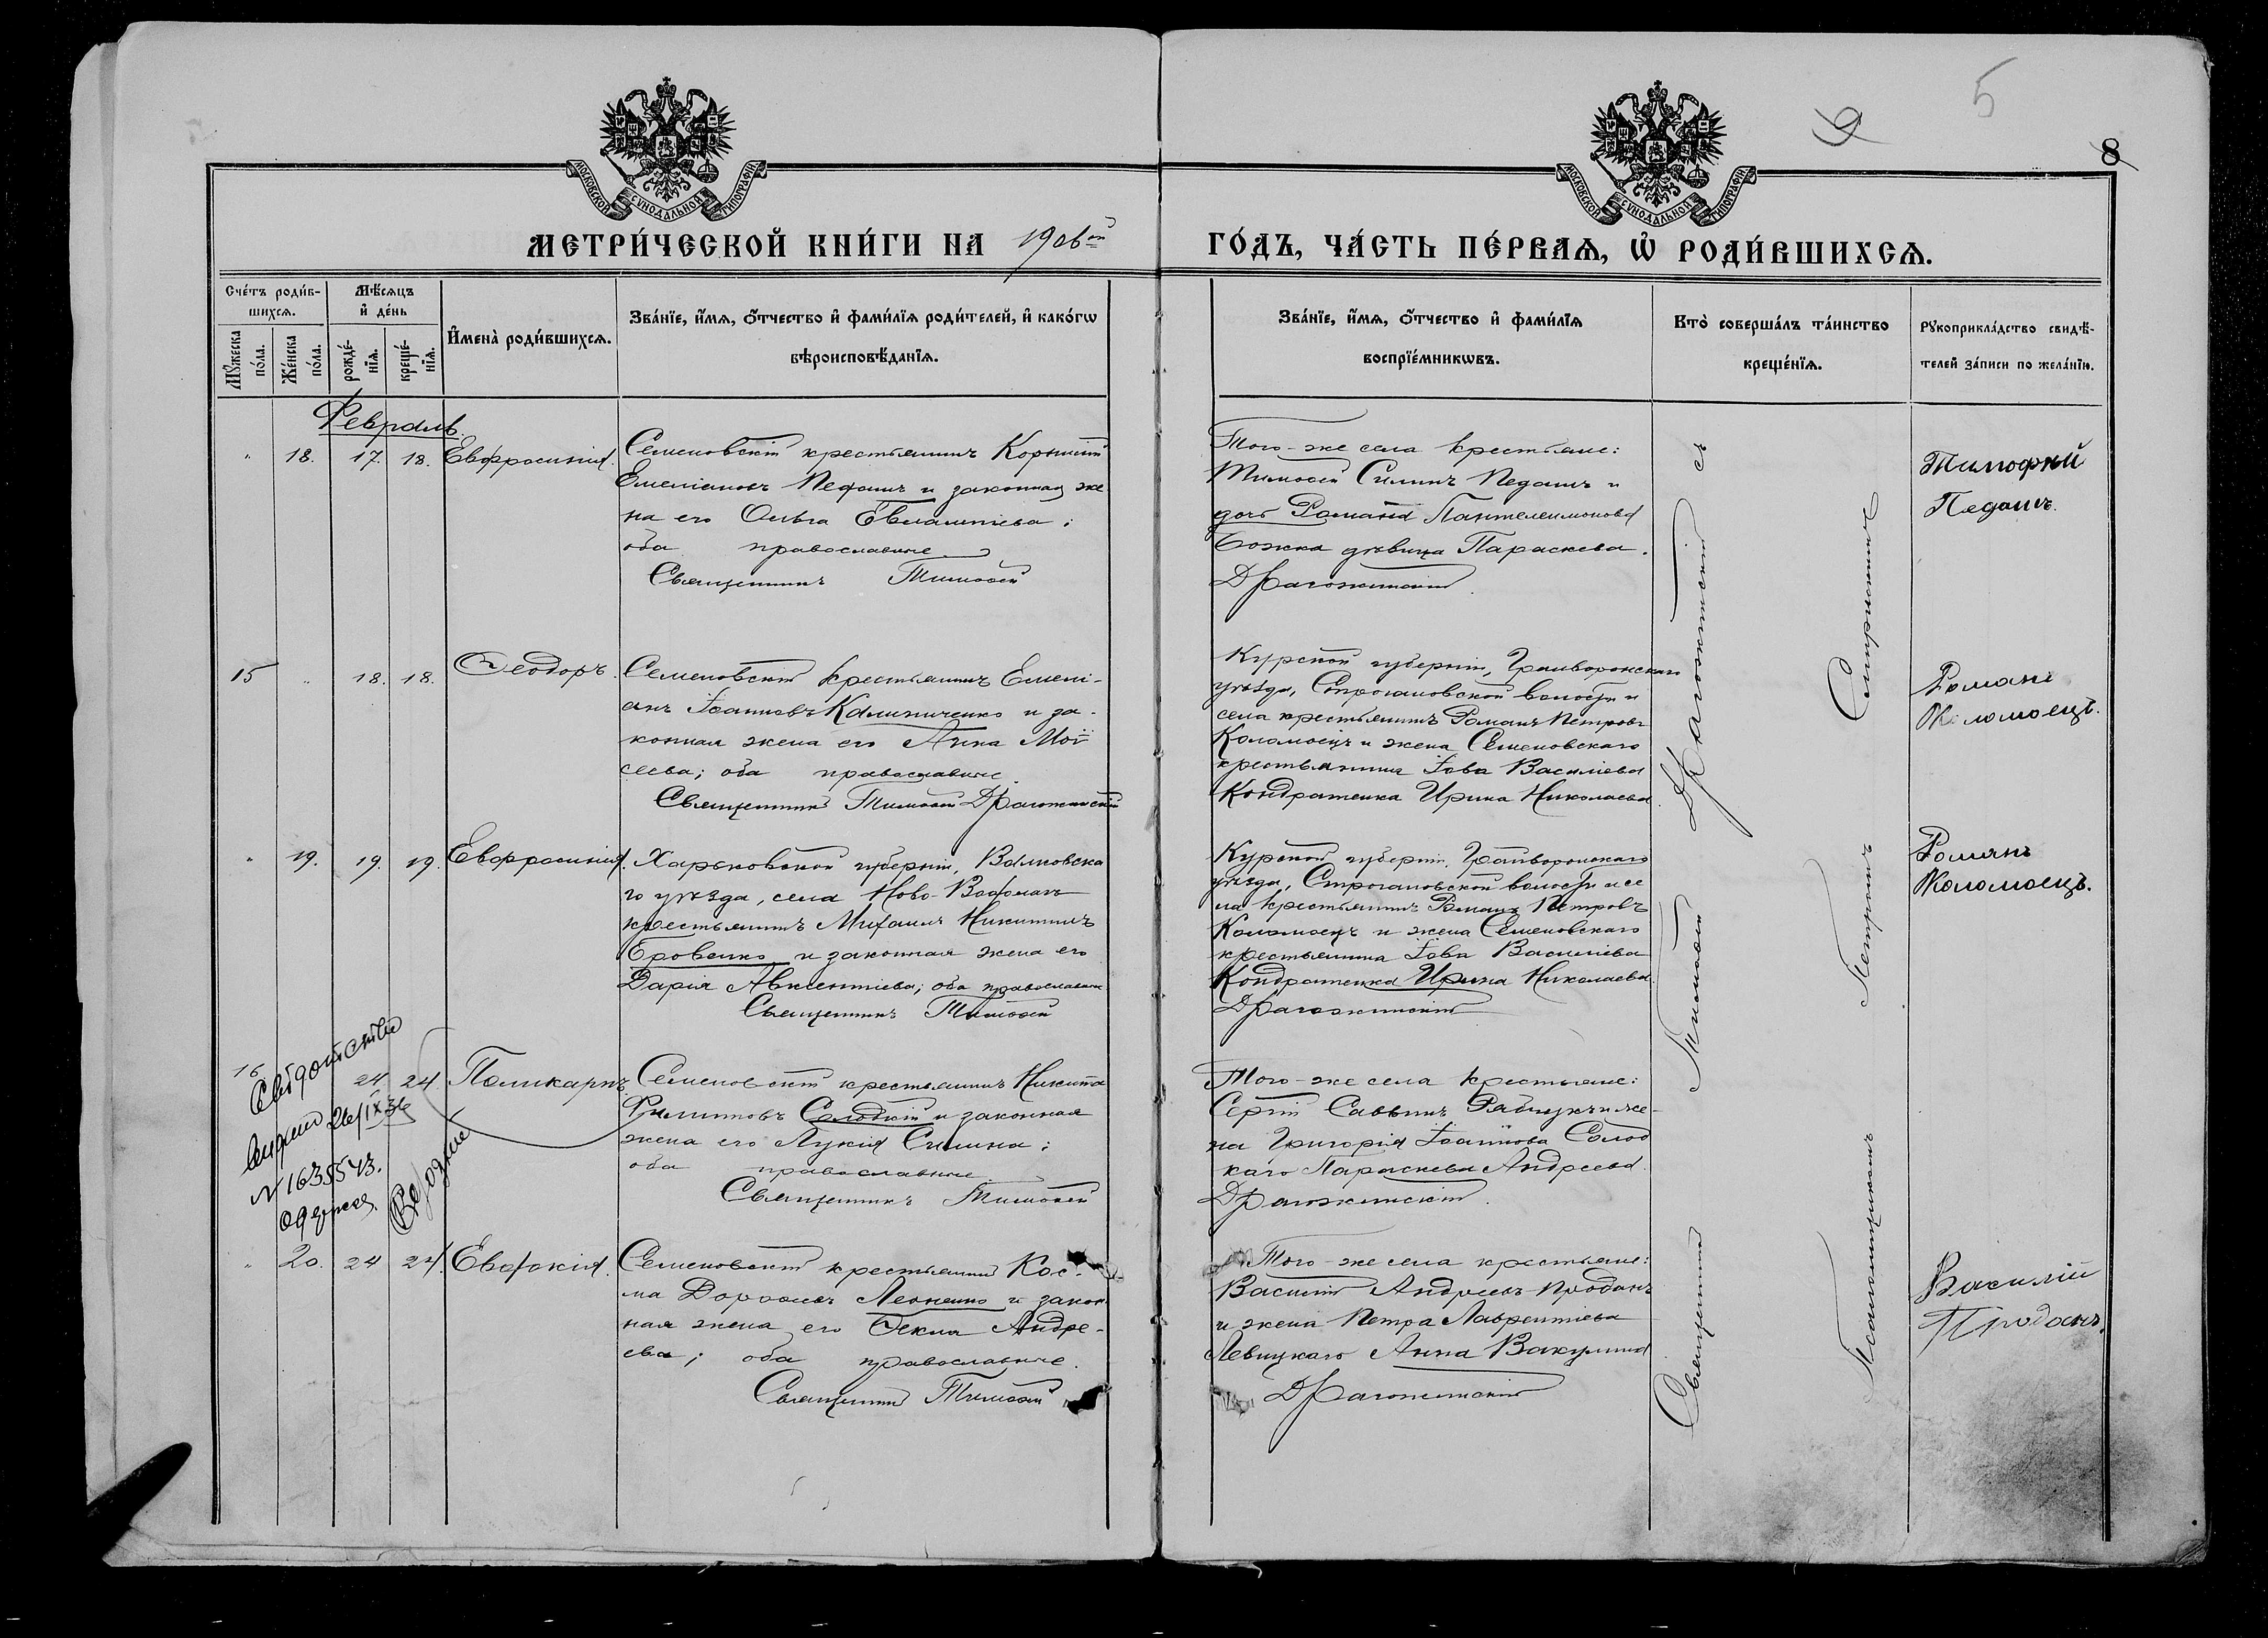 6
5
8
МОСКОВСКОЙ СѴНОДАЛЬНОЙ ТИПОГРАФІИ
МОСКОВСКОЙ СѴНОДАЛЬНОЙ ТИПОГРАФІИ
МЕТРИ́ЧЕСКОЙ КНИ́ГИ НА 1906ой
ГО́ДЪ, ЧА́СТЬ ПЕ́РВАѦ, Ѡ҆ РОДИ́ВШИХСѦ.
Сче́тъ роди́в-
шихсѧ.
Мꙋ́жеска по́ла.
Же́нска по́ла.
Мѣ́сѧцъ
и҆ де́нь
рожде́-нїѧ.
креще́-нїѧ.
И҆мена̀ роди́вшихсѧ.
Зва́нїе, и҆́мѧ, ѻ҆́тчество и҆ фами́лїѧ роди́телей, и҆ како́гѡ
вѣроисповѣ́данїѧ.
Зва́нїе, и҆́мѧ, ѻ҆́тчество и҆ фами́лїѧ
воспрїе́мникѡвъ.
Кто̀ соверша́лъ та́инство
креще́нїѧ.
Рꙋкоприкла́дство свидѣ́-
телей за́писи по жела́нїю.
Февраль.
" 18. 17. 18. Евфросинія.
Семеновскій крестьянинъ Корнилій
Емеліановъ Педашъ и законная же
на его Ольга Евлампіева;
оба православные.
Священникъ Тимоѳей
Того-же села крестьяне:
Тимоѳей Силинъ Педашъ и
дочь Романа Пантелеимонова
Божка дѣвица Параскева.
Драгожинскій.
Тимофѣй
Педашъ.
15 " 18. 18. Ѳеодоръ.
Семеновскій крестьянинъ Емелі-
анъ Іоанновъ Калиниченко и за-
конная жена его Анна Мои
сеева; оба православные.
Священникъ Тимоѳей Драгожинскій
Курской губерніи, Грайворонскаго
уѣзда, Строгановской волости и
села крестьянинъ Романъ Петровъ
Коломоецъ и жена Семеновскаго
крестьянина Іова Василіева
Кондратенка Ирина Николаева.
Романъ
Коломоецъ.
" 19. 19. 19. Евфросинія.
Харьковской губерніи, Валковска
го уѣзда, села Ново-
крестьянинъ Михаилъ Никитинъ
Бровенко и законная жена его
Дарія Авксентіева; оба православные
Священникъ Тимоѳей
Курской губерніи, Грайворонскаго
уѣзда, Строгановской волости и се
ла крестьянинъ Романъ Петровъ
Коломоецъ и жена Семеновскаго
крестьянина Іова Василіева
Кондратенка Ирина Николаева.
Драгожинскій
Романъ
Коломоецъ.
16 24 24 Поликарпъ.
26/IX 36
N 1635543.
Семеновскій крестьянинъ Никита
Филипповъ Солодкій и законная
жена его Лукія Силина;
оба православные
Священникъ Тимоѳей
Того-же села крестьяне:
Сергій Саввинъ и же-
на Григорія Іоаннова Солод
каго Параскева Андреева.
Драгожинскій.
" 20. 24 24. Евдокія.
Семеновскій крестьянинъ Кос-
ма Дороѳеевъ и закон
ная жена его Ѳекла Андре-
ева; оба православные.
Священникъ Тимоѳей
Того-же села крестьяне:
Василій Андреевъ Проданъ
и жена Петра Лаврентіева
Левицкаго Анна Вакулина
Драгожинскій
Василій
Проданъ.
Священникъ Тимоѳей Драгожинскій съ
Псаломщикомъ Петромъ Смирнскимъ